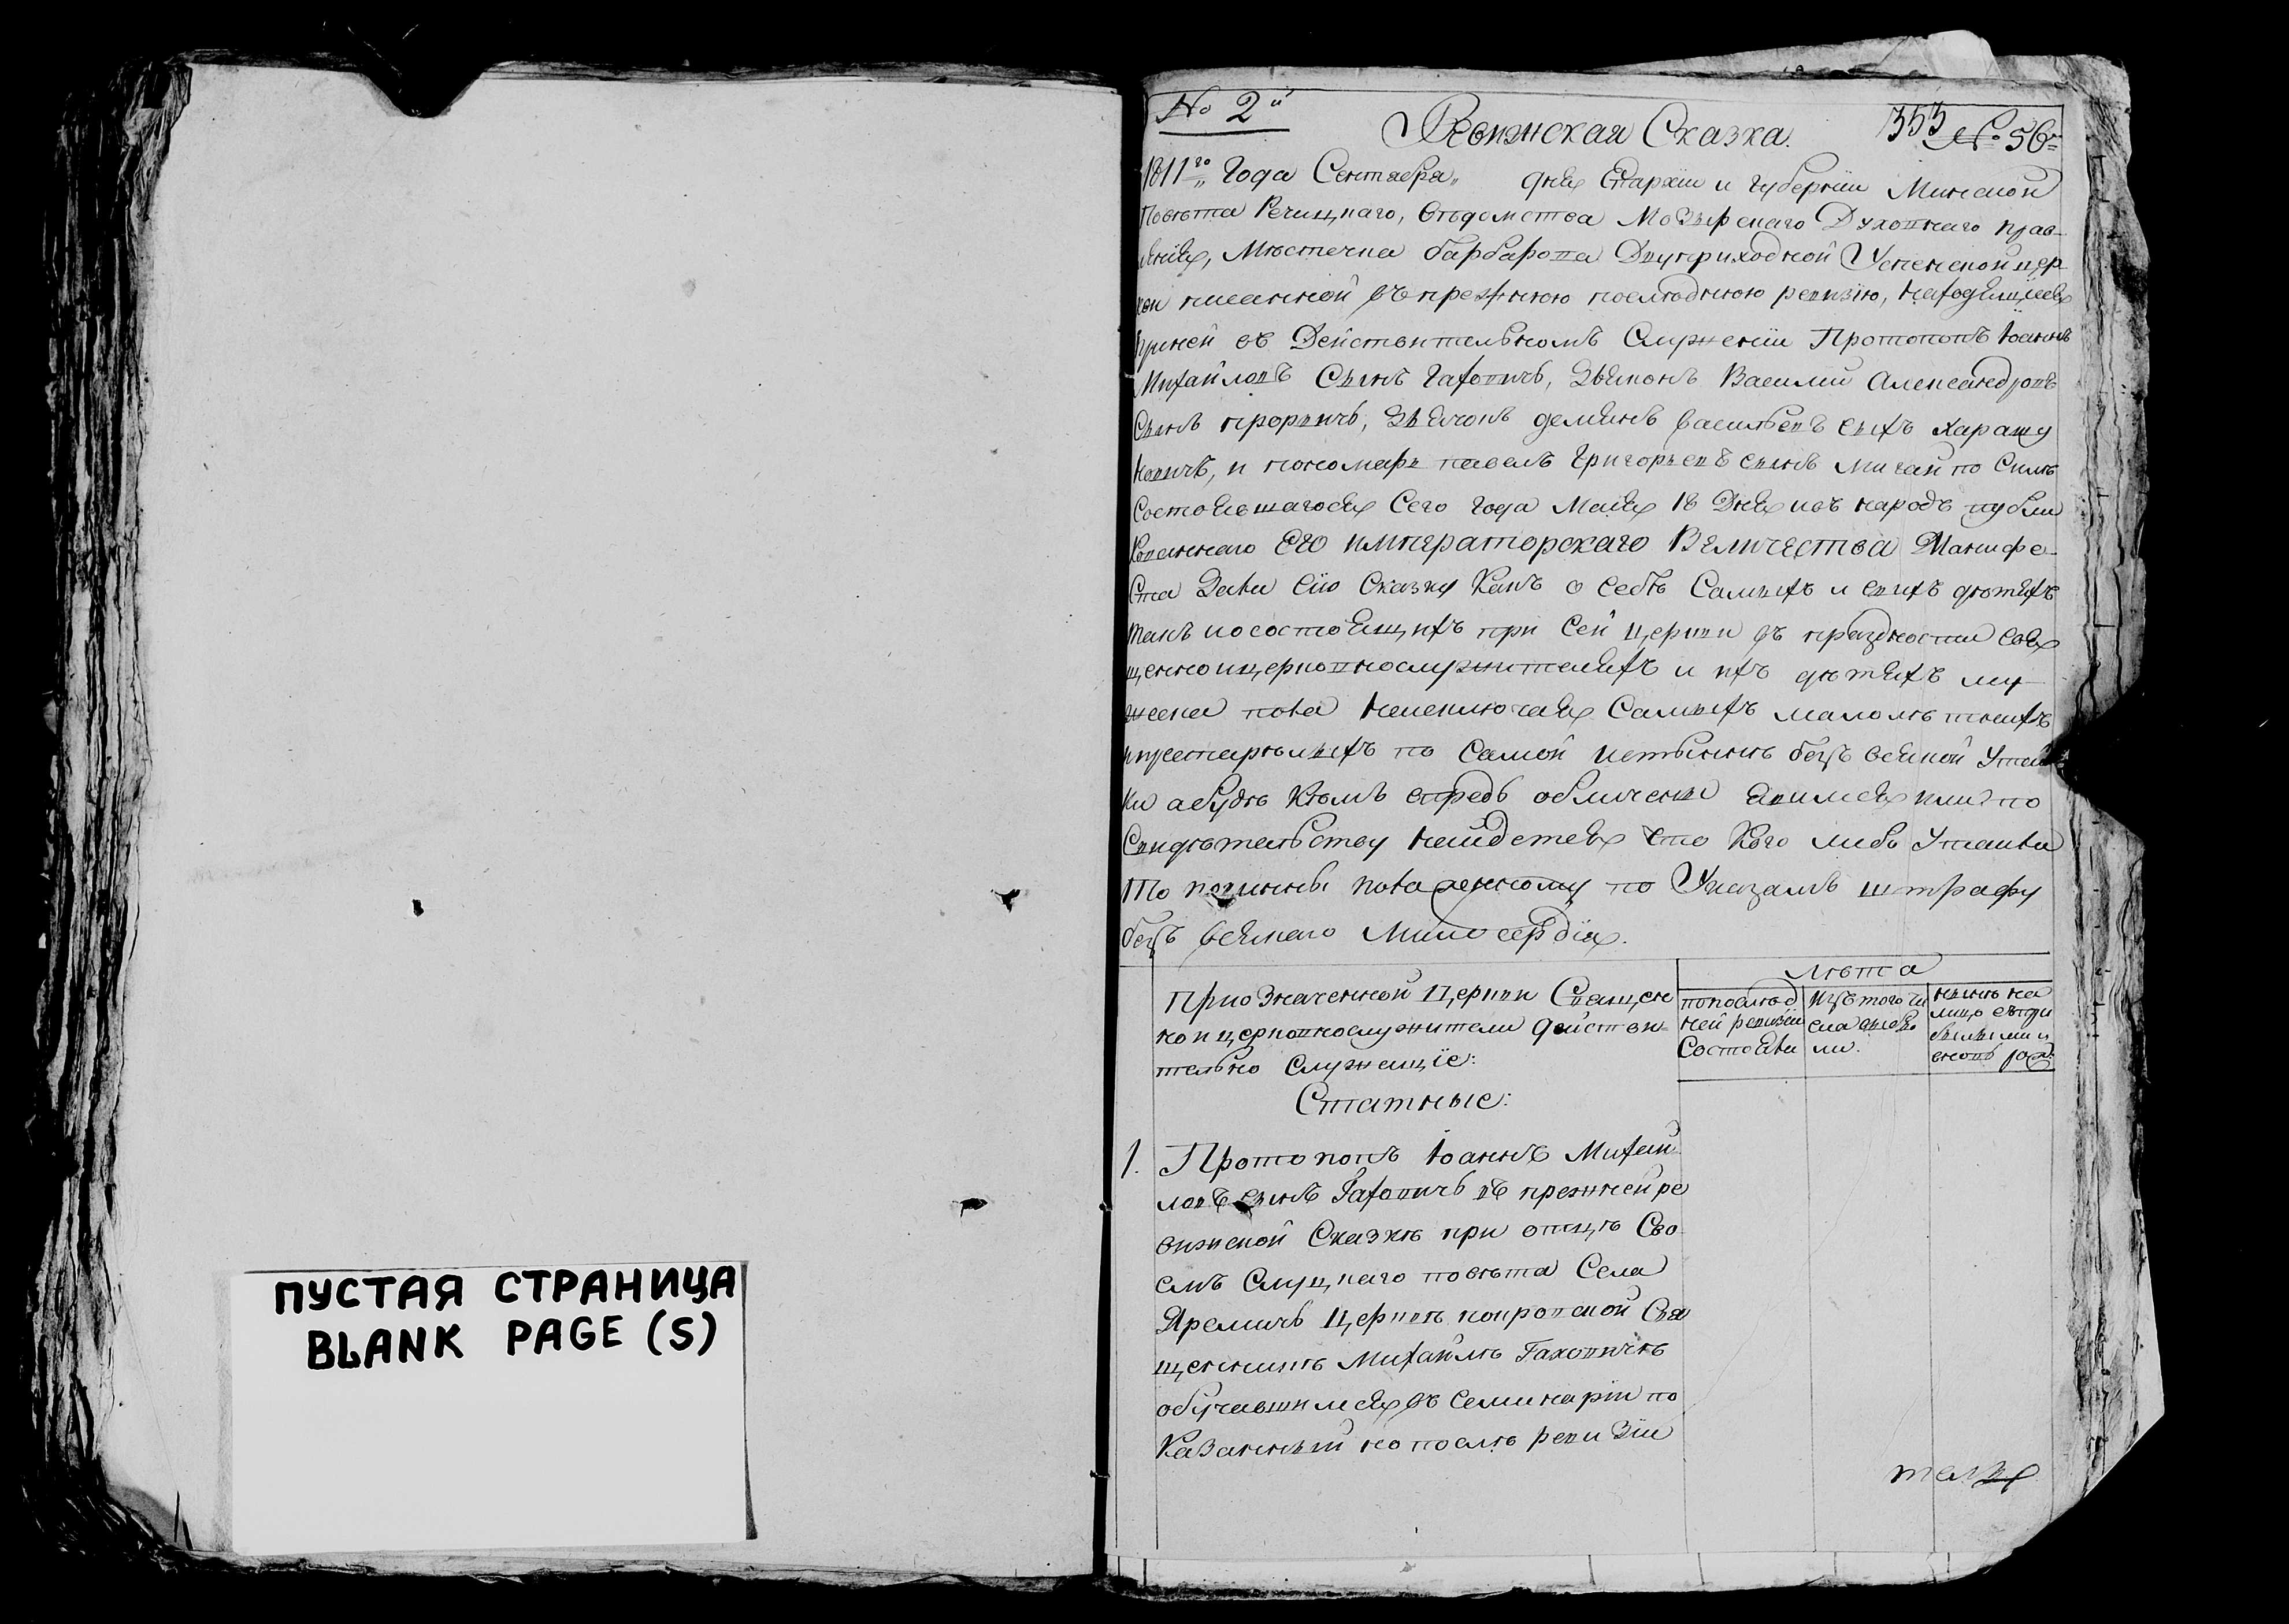 ПУСТАЯ СТРАНИЦА
BLANK PAGE (S)
№ 2й
353 № 56
Ревижская Сказка.
1811го Года Сентября „ дня Епархіи и Губерніи Минской
Повѣта Речицкаго, вѣдомства Мозырскаго Духовнаго прав-
ленія, Мѣстечка барбарова Двуприходной Успенской цер
кви писанной въ прежнюю послѣднюю ревизію, находящіеся
при ней въ Действительномъ Служеніи Протопопъ Іоаннъ
Михайловъ Сынъ Гаховичъ, Дьяконъ Василий Александровъ
Сынъ прорвичъ, дьячокъ демьянъ васильевъ сынъ
и пономарь павелъ Григорьевъ сынъ мигай по Силѣ
Состоявшагося Сего года Маія 18 Дня и въ народъ публи
кованнаго Его императорскаго Величества Манифе-
ста Дали сію Сказку Какъ о Себѣ Самыхъ и своихъ дѣтяхъ
такъ и о состоящихъ при Сей церкви въ праздности свя
щенно и церковнослужителяхъ и ихъ дѣтяхъ му-
жеска пола неисключая Самыхъ малолѣтныхъ
и престарѣлыхъ по Самой истыннѣ безъ всякой Утай
ки а будѣ кѣмъ впредь обличены явимся или по
Свидѣтельству найдется что Кого либо Утаили
То повинны положенному по Указамъ штрафу
безъ всякаго милосердія.
При означенной Церкви Священ
но и церковнослужители дѣйстви-
тельно Служащіе:
Лѣта
по послѣд
ней ревизіи
Состояли
изъ того чи
сла выбы
ли.
нынѣ на
лицо съ
прибылыми и
вновь рож
Статные:
1. Протопопъ Іоаннъ Михай
ловъ сынъ Гаховичъ въ прежней ре
вижской Сказкѣ при отцѣ Сво
емъ Слуцкаго повѣта Села
Яремичъ Церкви покровской Свя
щенникѣ Михайлѣ Гаховичѣ
обучавшимся въ Семинаріи по
Казанный но послѣ ревизіи